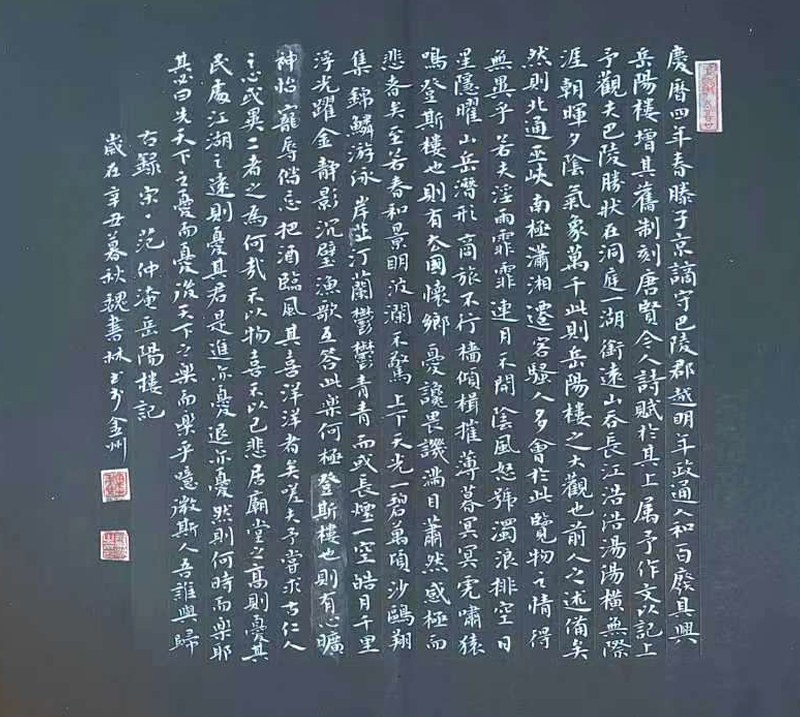 慶曆四年春滕子京謫守巴陵郡越明年政通人和百廢具興
岳陽樓增其舊制刻唐賢今人詩賦於其上属予作文以記之
予觀夫巴陵勝狀在洞庭一湖銜遠山吞長江浩浩湯湯橫無際
涯朝暉夕陰氣象萬千此則岳陽樓之大觀也前人之述備矣
然則北通巫峽南極瀟湘遷客騷人多會於此覽物之情得
無異乎若夫淫雨霏霏連月不開陰風怒號濁浪排空日
星隱曜山岳潛形商旅不行檣傾楫摧薄暮冥冥虎嘯猿
鳴登斯樓也則有去國懷鄉憂讒畏譏滿目蕭然感極而
悲者矣至若春和景明波瀾不驚上下天光一碧萬頃沙鷗翔
集錦鱗游泳岸芷汀蘭鬱鬱青青而或長煙一空皓月千里
浮光躍金靜影沉璧漁歌互答此樂何極登斯樓也則有心曠
神怡寵辱偕忘把酒臨風其喜洋洋者矣嗟夫予嘗求古仁人
之心或異二者之為何哉不以物喜不以己悲居廟堂之高則憂其
民處江湖之遠則憂其君是進亦憂退亦憂然則何時而樂耶
其必曰先天下之憂而憂後天下之樂而樂乎噫微斯人吾誰與歸
右錄宋、范仲淹岳陽樓記
歲在辛丑暮秋魏書林書於金州